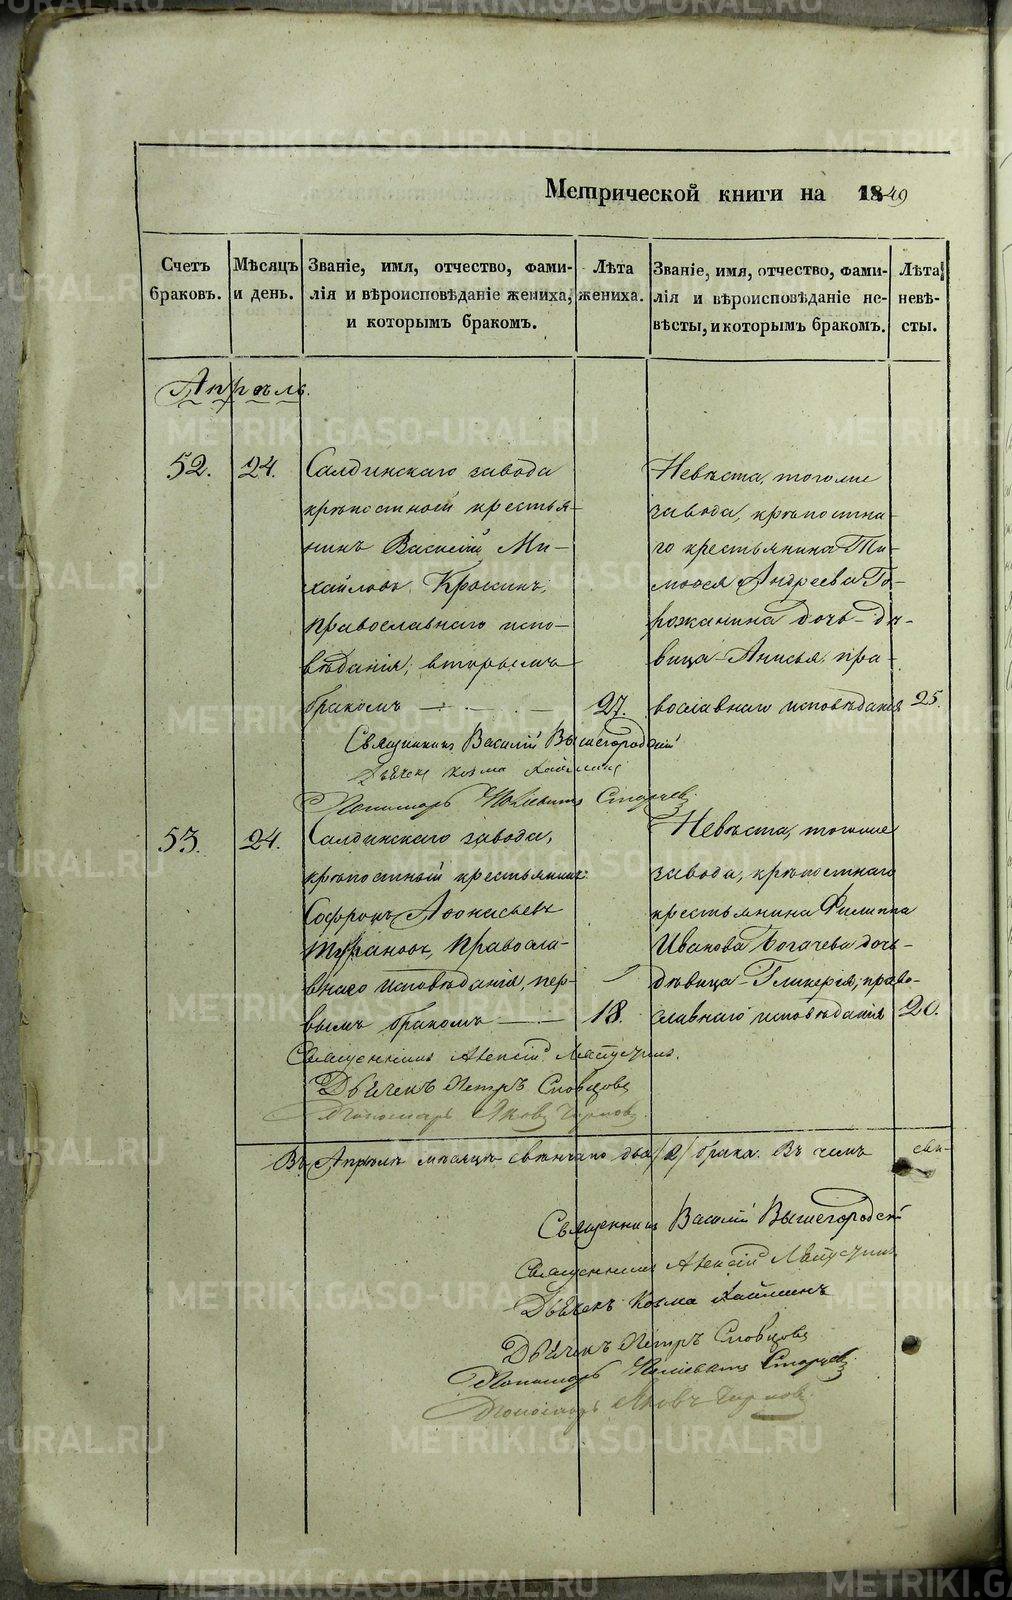 METRIKI.GASO-URAL.RU
Метрической книги на 1849
Счетъ браковъ.
Мѣсяцъ и день.
Званіе, имя, отчество, фами-
лія и вѣроисповѣданіе жениха,
и которымъ бракомъ.
Лѣта жениха.
Званіе, имя, отчество, фами-
лія и вѣроисповѣданіе не-
вѣсты, и которымъ бракомъ.
Лѣта невѣ-
сты.
Апрѣль.
52. 24.
Салдинскаго завода
крѣпостной крестья-
нинъ Василій Ми-
хайловъ
православнаго испо-
вѣданія, вторымъ
бракомъ 27.
Невѣста, тогоже
завода, крѣпостна-
го крестьянина Ти-
моѳея Андреева Го-
рожанина дочь дѣ-
вица Анисья, пра-
вославнаго исповѣданія 25.
Священникъ Василій Вышегородскій
Дьячекъ Козма
Пономарь
53. 24.
Салдинскаго завода,
крѣпостный крестьянинъ
Софронъ Аѳонасьевъ
православ-
внаго исповѣданія, пер-
вымъ бракомъ 18.
Невѣста, тогоже
завода, крѣпостнаго
крестьянина Филиппа
Иванова Богачева дочь
дѣвица Гликерія, право-
славнаго исповѣданія 20.
Священникъ Алексій
Дьячекъ Петръ Словцовъ
Пономарь Яковъ
Въ Апрѣлѣ мѣсяцѣ свѣнчано два /2/ брака. Въ чемъ сви-
Священникъ Василій Вышегородскій
Священникъ Алексій
Дьячекъ Козма
Дьячекъ Петръ Словцовъ
Пономарь
Пономарь Яковъ